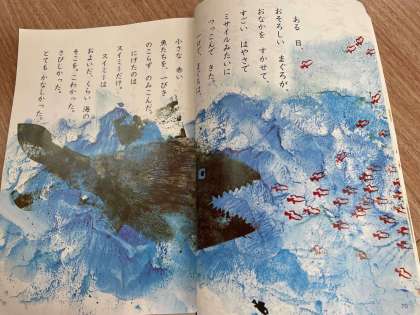 ある 日、
おそろしい まぐろが、
おなかを すかせて、
すごい はやさで
ミサイルみたいに
つっこんで きた。
一口で、まぐろは、
小さな 赤い
魚たちを、一ぴき
のこらず のみこんだ。
にげたのは
スイミーだけ。
スイミーは
およいだ、くらい 海の
そこを。こわかった。
さびしかった。
とても かなしかった。